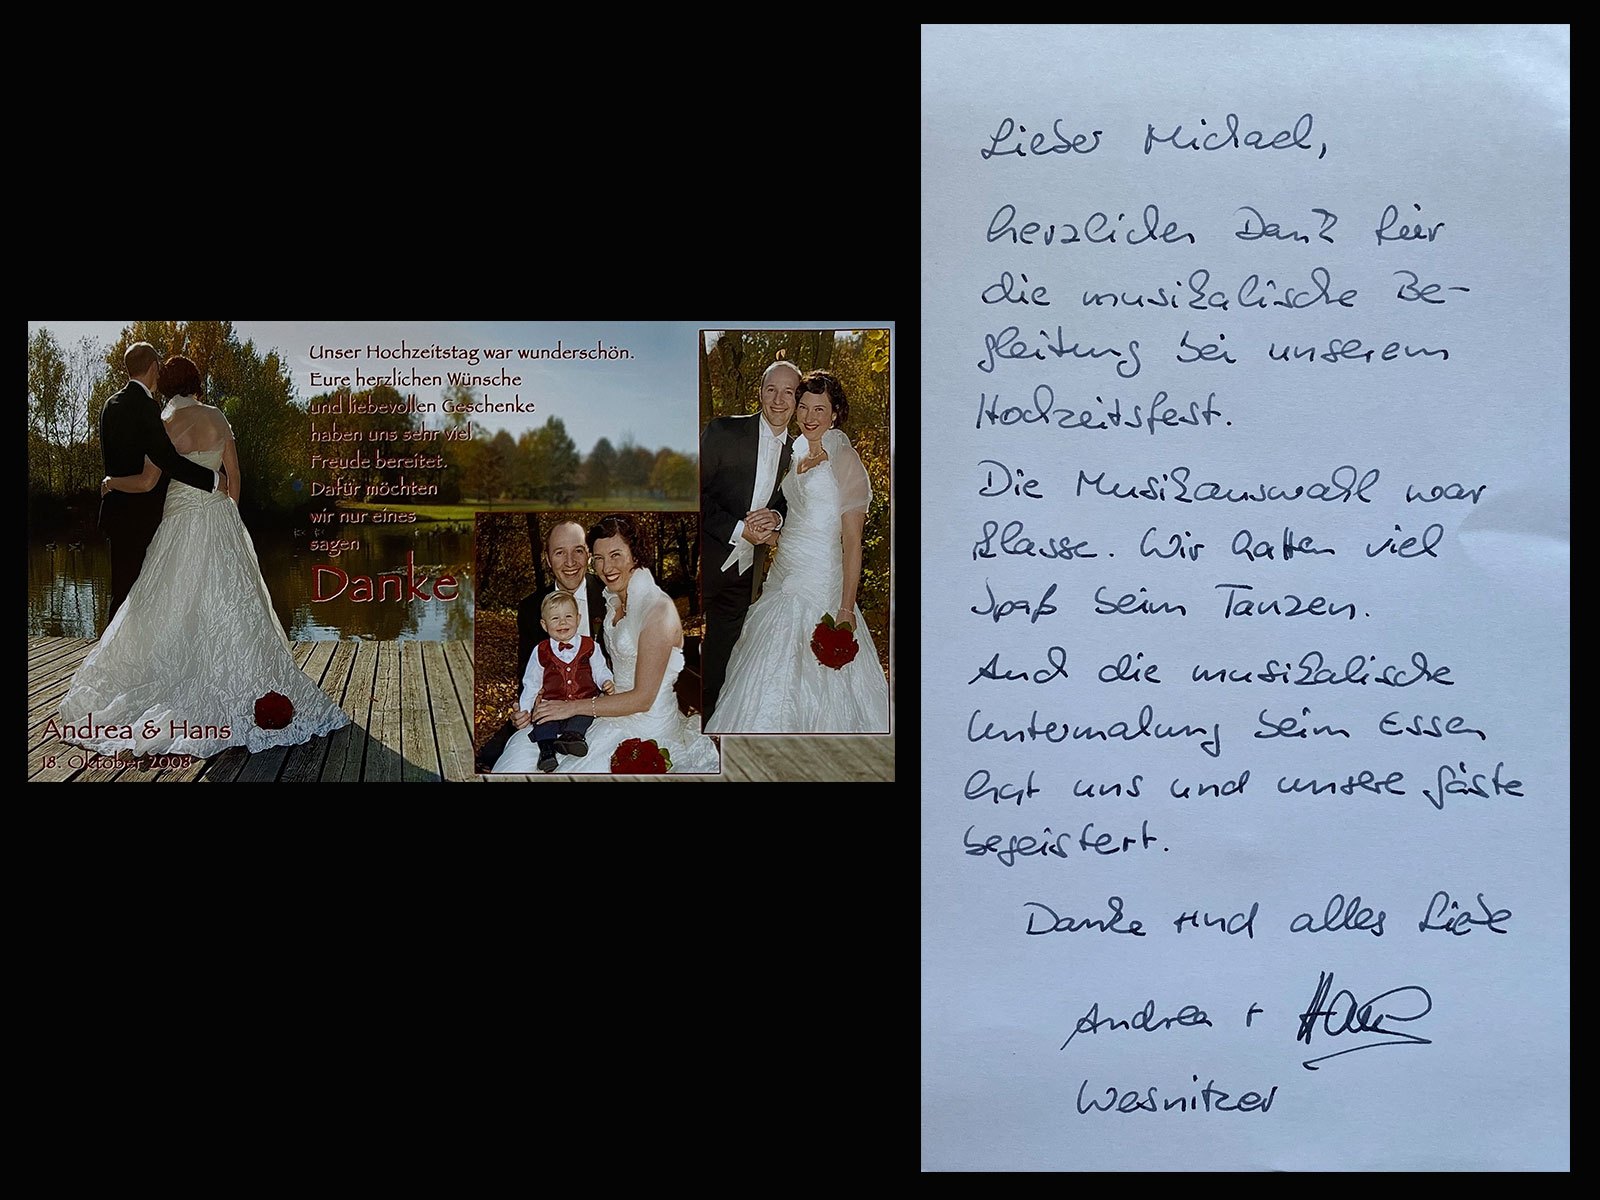 Unser Hochzeitstag war wunderschön.
Eure herzlichen Wünsche
und liebevollen Geschenke
haben uns sehr viel
Freude bereitet.
Dafür möchten
wir nur eines
sagen
Danke
Andrea & Hans
18. Oktober 2008
Lieber Michael,
herzlichen Dank für
die musikalische Be-
gleitung bei unserem
Hochzeitsfest.
Die Musikauswahl war
klasse. Wir hatten viel
Spaß beim Tanzen.
Auch die musikalische
Untermalung beim Essen
hat uns und unsere Gäste
begeistert.
Danke und alles Liebe
Andrea + Hans
Wesnitzer